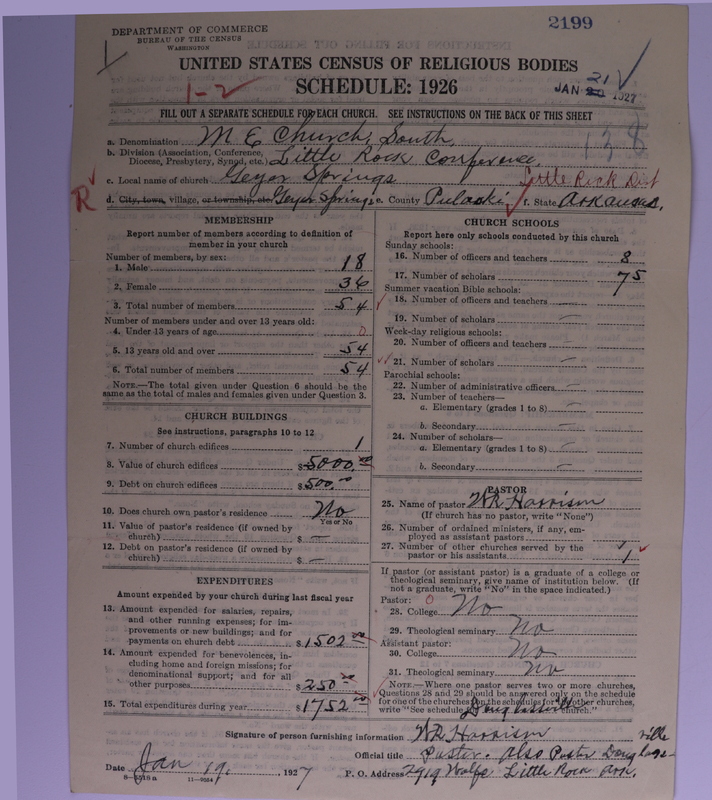 2199
DEPARTMENT OF COMMERCE
BUREAU OF THE CENSUS
WASHINGTON
UNITED STATES CENSUS OF RELIGIOUS BODIES
SCHEDULE: 1926
1-2
JAN 21 1927
FILL OUT A SEPARATE SCHEDULE FOR EACH CHURCH. SEE INSTRUCTIONS ON THE BACK OF THIS SHEET
138
a. Denomination M E Church, South,
b. Division (Association, Conference, Diocese, Presbytery, Synod, etc.) Little Rock Conference,
c. Local name of church Geyer Springs Little Rock Dist
R d. City, town, village, or township, etc. Geyer Springs e. County Pulaski f. State Arkansas,
MEMBERSHIP
Report number of members according to definition of
member in your church
Number of members, by sex:
1. Male 18
2. Female 36
3. Total number of members 54
Number of members under and over 13 years old:
4. Under 13 years of age 0
5. 13 years old and over 54
6. Total number of members 54
NOTE.—The total given under Question 6 should be the
same as the total of males and females given under Question 3.
CHURCH BUILDINGS
See instructions, paragraphs 10 to 12
7. Number of church edifices 1
8. Value of church edifices $5000.00
9. Debt on church edifices $500.00
10. Does church own pastor's residence? No
Yes or No
11. Value of pastor's residence (if owned by
church) $ —
12. Debt on pastor's residence (if owned by
church) $ —
EXPENDITURES
Amount expended by your church during last fiscal year
13. Amount expended for salaries, repairs,
and other running expenses; for im-
provements or new buildings; and for
payments on church debt $1502.00
14. Amount expended for benevolences, in-
cluding home and foreign missions; for
denominational support; and for all
other purposes $250.00
15. Total expenditures during year $1752.00
CHURCH SCHOOLS
Report here only schools conducted by this church
Sunday schools:
16. Number of officers and teachers 8
17. Number of scholars 75
Summer vacation Bible schools:
18. Number of officers and teachers —
19. Number of scholars —
Week-day religious schools:
20. Number of officers and teachers —
21. Number of scholars —
Parochial schools:
22. Number of administrative officers —
23. Number of teachers—
a. Elementary (grades 1 to 8) —
b. Secondary —
24. Number of scholars—
a. Elementary (grades 1 to 8) —
b. Secondary —
PASTOR
25. Name of pastor W R Harrison
(If church has no pastor, write "None")
26. Number of ordained ministers, if any, em-
ployed as assistant pastors
27. Number of other churches served by the
pastor or his assistants 1
If pastor (or assistant pastor) is a graduate of a college or
theological seminary, give name of institution below. (If
not a graduate, write "No" in the space indicated.)
Pastor: 0
28. College No
29. Theological seminary No
Assistant pastor:
30. College No
31. Theological seminary No
NOTE.—Where one pastor serves two or more churches,
Questions 28 and 29 should be answered only on the schedule
for one of the churches; on the schedules for the other churches,
write "See schedule for Douglassville church."
Signature of person furnishing information W R Harrison
Official title Pastor. Also Pastor Douglass-
ville
Date Jan 19, 1927 P. O. Address 2919 Wolfe, Little Rock Ark.
8-5518a 11-9084